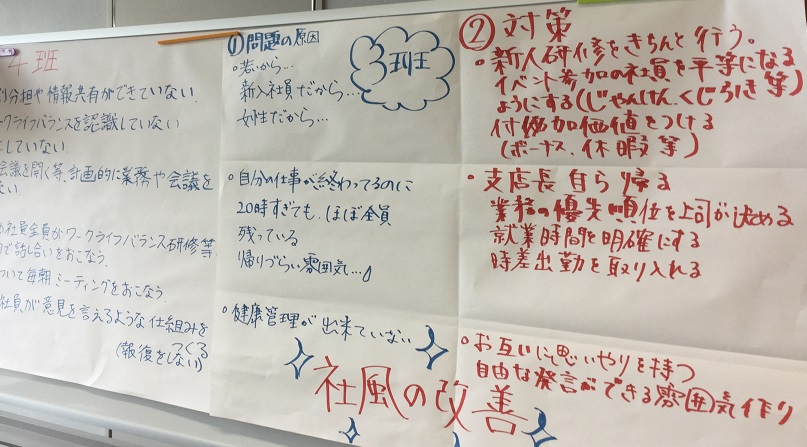 4班
分担や情報共有ができていない.
ークライフバランスを認識していない
していない.
会議を開く等、計画的に業務や会議を
社員全員がワークライフバランス研修等.
で話し合いをおこなう.
ついて毎朝ミーティングをおこなう
社員が意見を言えるような仕組みを
つくる
(報復をしない)
①問題の原因
3班
・若いから…
新入社員だから…
女性だから…
・自分の仕事が終わってるのに
20時すぎても、ほぼ全員
残っている
帰りづらい雰囲気…
・健康管理が出来ていない
社風の改善
②対策
・新人研修をきちんと行う。
イベント参加の社員を平等になる
ようにする(じゃんけん、くじ引き等)
付加価値をつける
(ボーナス、休暇等)
・支店長自ら帰る
業務の優先順位を上司が決める
就業時間を明確にする
時差出勤を取り入れる
・お互いに思いやりを持つ
自由な発言ができる雰囲気作り